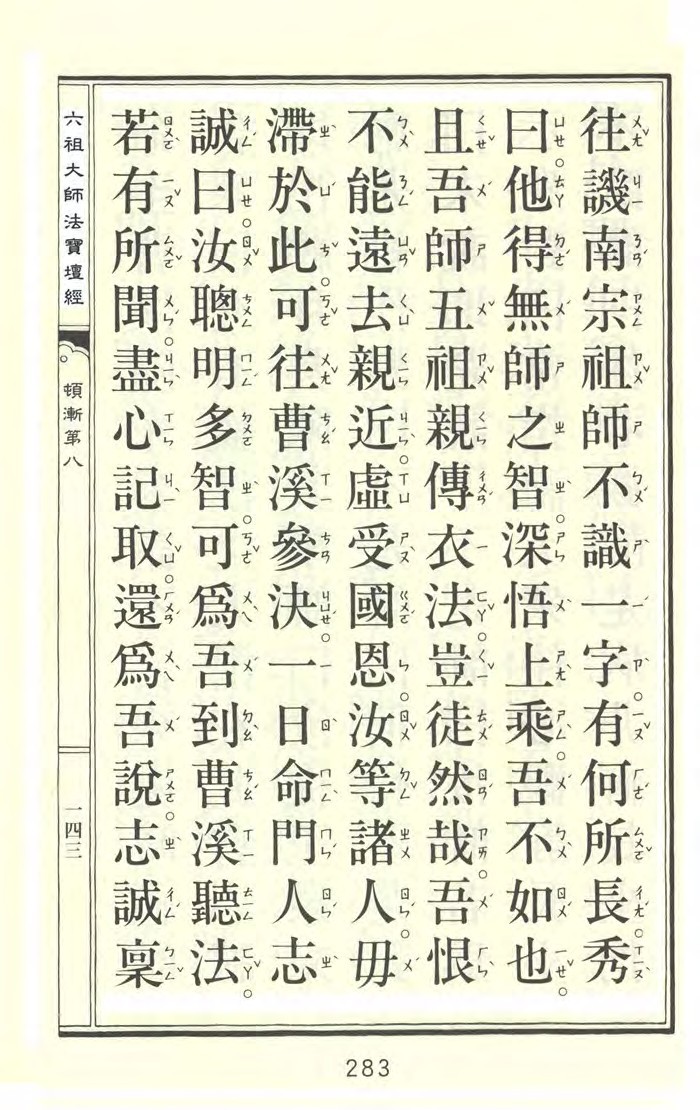 往譏南宗祖師不識一字有何所長秀
曰他得無師之智深悟上乘吾不如也
且吾師五祖親傳衣法豈徒然哉吾恨
不能遠去親近虛受國恩汝等諸人毋
滯於此可往曹溪參決一日命門人志
誠曰汝聰明多智可為吾到曹溪聽法
若有所聞盡心記取還為吾說志誠稟
六祖大師法寶壇經
頓漸第八
一四三
283